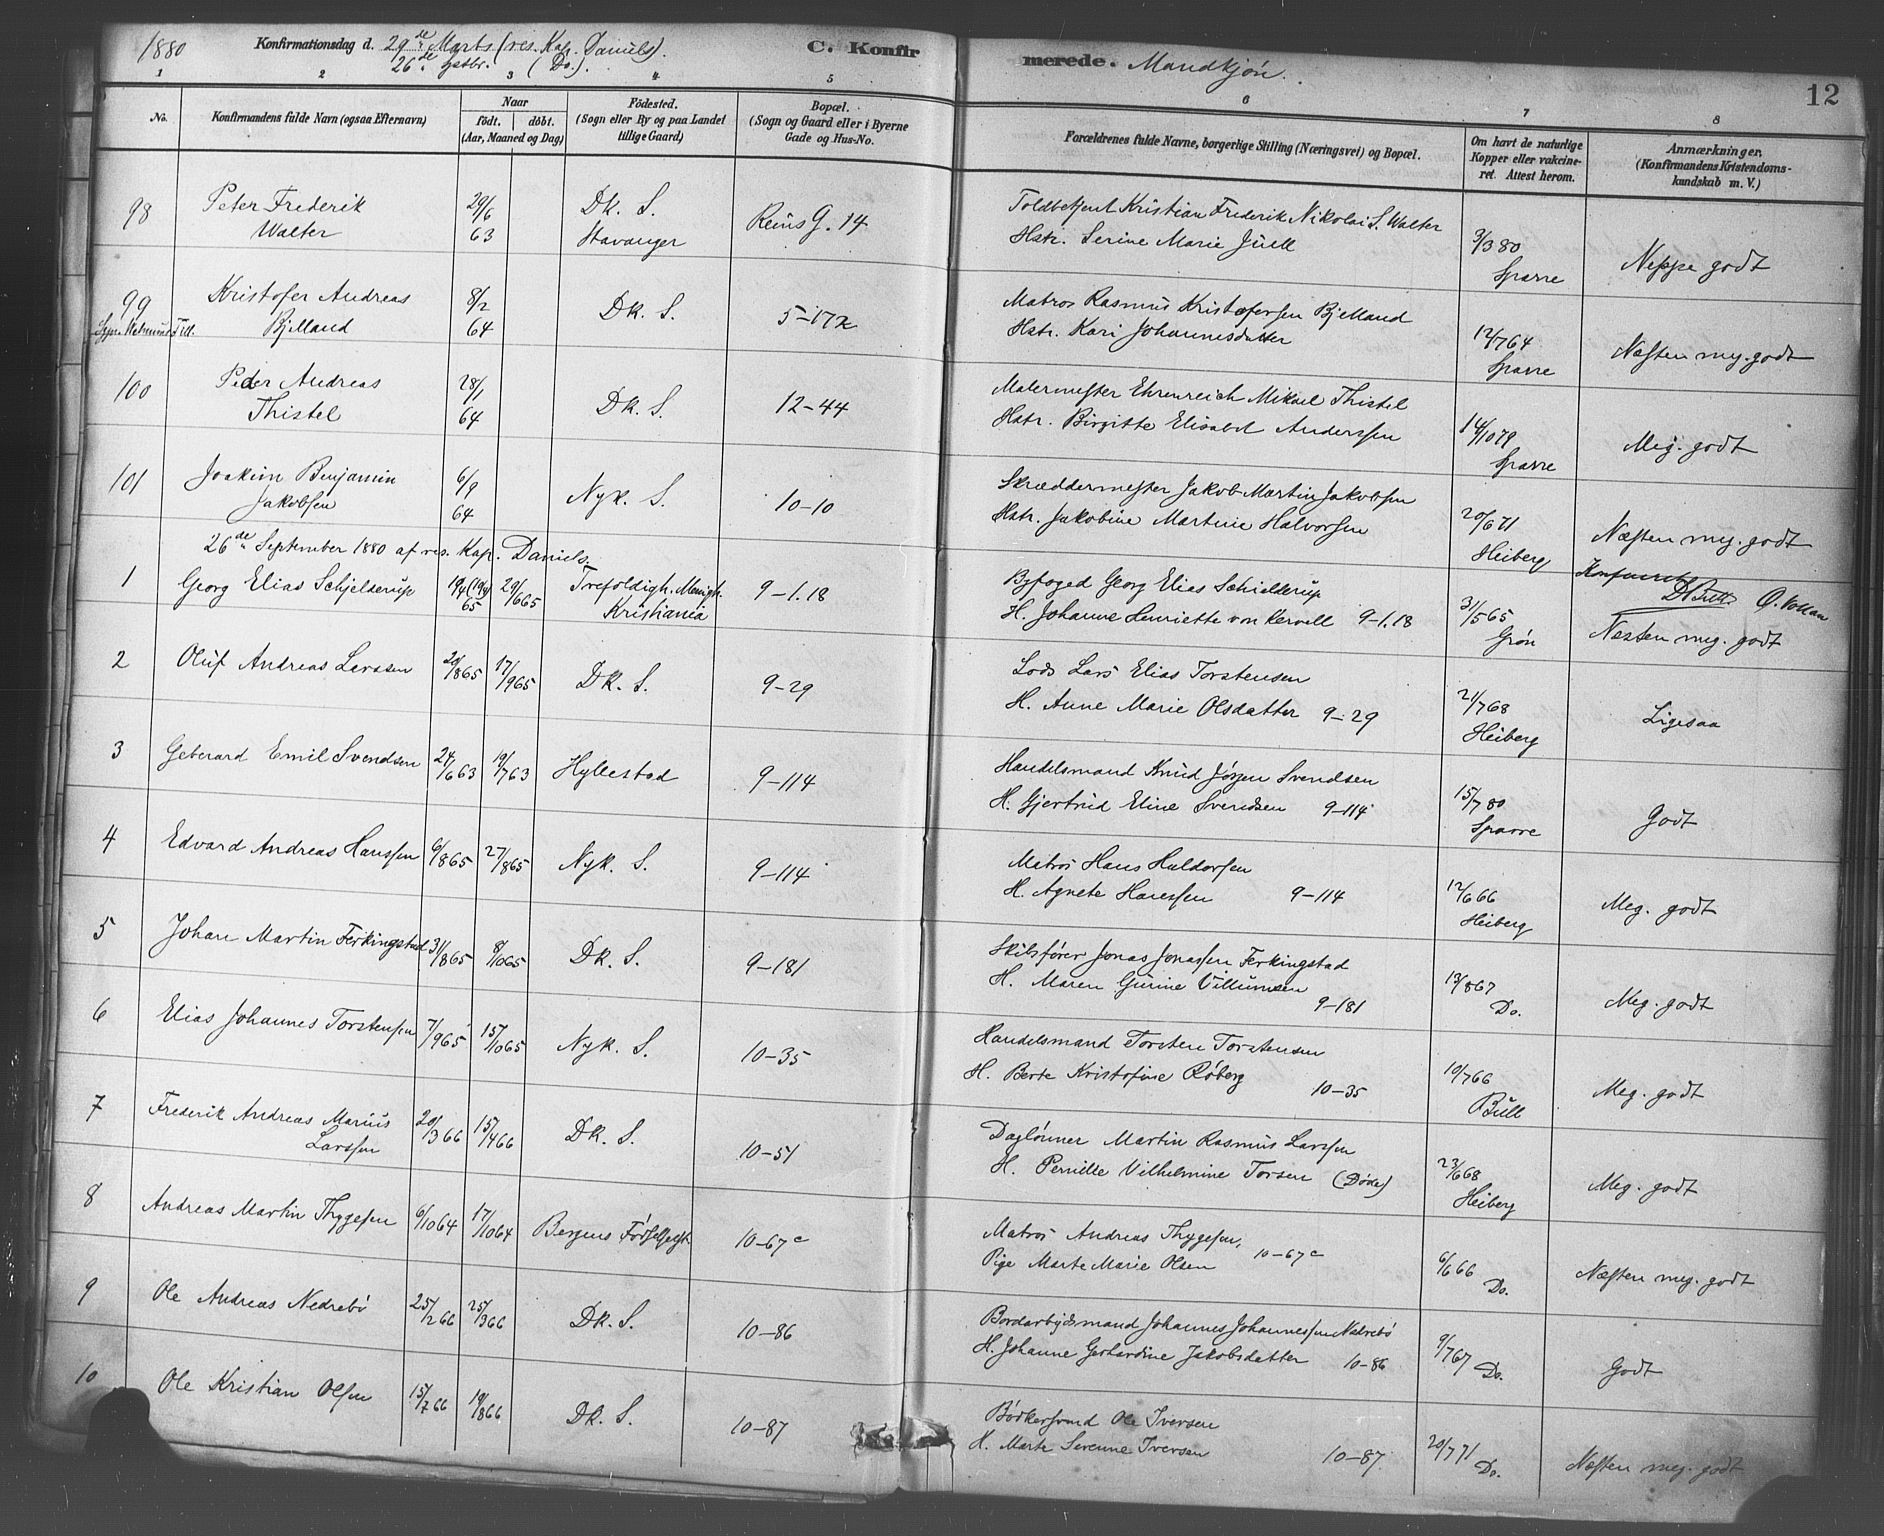 1880 Konfirmationsdag d. 29de Marts (res. Kap. Daniels). C. Konfirmerede. Mandkjön. 12
26de Septbr. (Do.).
1 2 3 4 5 6 7 8
No. Konfirmandens fulde Navn (ogsaa Efternavn) Naar Födt. döbt. (Aar, Maaned og Dag) Födested. (Sogn eller By og paa Landet tillige Gaard) Bopæl. (Sogn og Gaard eller i Byerne Gade og Hus-No. Forældrenes fulde Navne, borgerlige Stilling (Næringsvei) og Bopæl. Om havt de naturlige Kopper eller vakcineret. Attest herom. Anmærkninger, (Konfirmandens Kristendomskundskab m. V.)
98 Peter Frederik 29/6 Dk. S. Reins G. 14 Toldbetjent Kristian Frederik Nikolai S. Walter 3/3 80 Neppe godt
Walter 63 Stavanger Hstr. Serine Marie Juell Sparre
99 Kristofer Andreas 8/2 Dk. S. 5-172 Matros Rasmus Kristofersen Bjelland 12/7 64 Næsten meg. godt
Bjelland 64 Hstr. Kari Johannesdatter Sparre
100 Peder Andreas 28/1 Dk. S. 12-44 Malermester Ehrenreich Mikael Thistel 14/10 79 Meg. godt
Thistel 64 Hstr. Birgitte Elisabet Anderssen Sparre
101 Joakim Benjamin 6/9 Nyk. S. 10-10 Skræddermester Jakob Martin Jakobsen 20/6 71 Næsten meg. godt
Jakobsen 64 Hstr. Jakobine Martine Halvorsen Heiberg
26de September 1880 af res. Kap. Daniels.
1 Georg Elias Schjelderup 19/4 (19/4) 65 29/6 65 Trefoldigh. Menigh. 9-1.18 Byfoged Georg Elias Schielderup 31/5 65 Næsten meg. godt
Kristiania H. Johanne Henriette von Kervell 9-1.18 Grøn
2 Oluf Andreas Larssen 20/8 65 17/9 65 Dk. S. 9-29 Lods Lars Elias Torstensen 21/7 68 Ligesaa
H. Anne Marie Olsdatter 9-29 Heiberg
3 Geberard Emil Svendsen 24/6 63 19/7 63 Hyllestad 9-114 Handelsmand Knud Jörgen Svendsen 15/7 80 Godt
H. Gjertrud Eline Svendsen 9-114 Sparre
4 Edvard Andreas Hanssen 6/8 65 27/8 65 Nyk. S. 9-114 Matros Hans Haldorsen 12/6 66 Meg. godt
H. Agnete Hanssen 9-114 Heiberg
5 Johan Martin Ferkingstad 31/8 65 8/10 65 Dk. S. 9-181 Skibsfører Jonas Jonassen Ferkingstad 13/8 67 Meg. godt
H. Maren Gurine Villumsen 9-181 Do.
6 Elias Johannes Torstensen 7/9 65 15/10 65 Nyk. S. 10-35 Handelsmand Torsten Torstensen 10/7 66 Meg. godt
H. Berte Kristofine Röberg 10-35 Bull
7 Frederik Andreas Marius 20/3 66 15/4 66 Dk. S. 10-51 Daglönner Martin Rasmus Larssen 23/6 68 Meg. godt
Larssen H. Pernille Vilhelmine Torsen (Döde) Heiberg
8 Andreas Martin Thygesen 6/10 64 17/10 64 Bergens Födselsst. 10-67c Matros Andreas Thygesen, 6/6 66 Næsten meg. godt
Pige Marte Marie Olsen 10-67c Do.
9 Ole Andreas Nedrebö 25/2 66 25/3 66 Dk. S. 10-86 Bordarbeidsmand Johannes Johannessen Nedrebö 9/7 67 Godt
H. Johanne Gerhardine Jakobsdatter 10-86 Do.
10 Ole Kristian Olsen 15/7 66 19/8 66 Dk. S. 10-87 Bödkersvend Ole Iversen 20/7 71 Næsten meg. godt
H. Marte Serenne Iversen 10-87 Do.